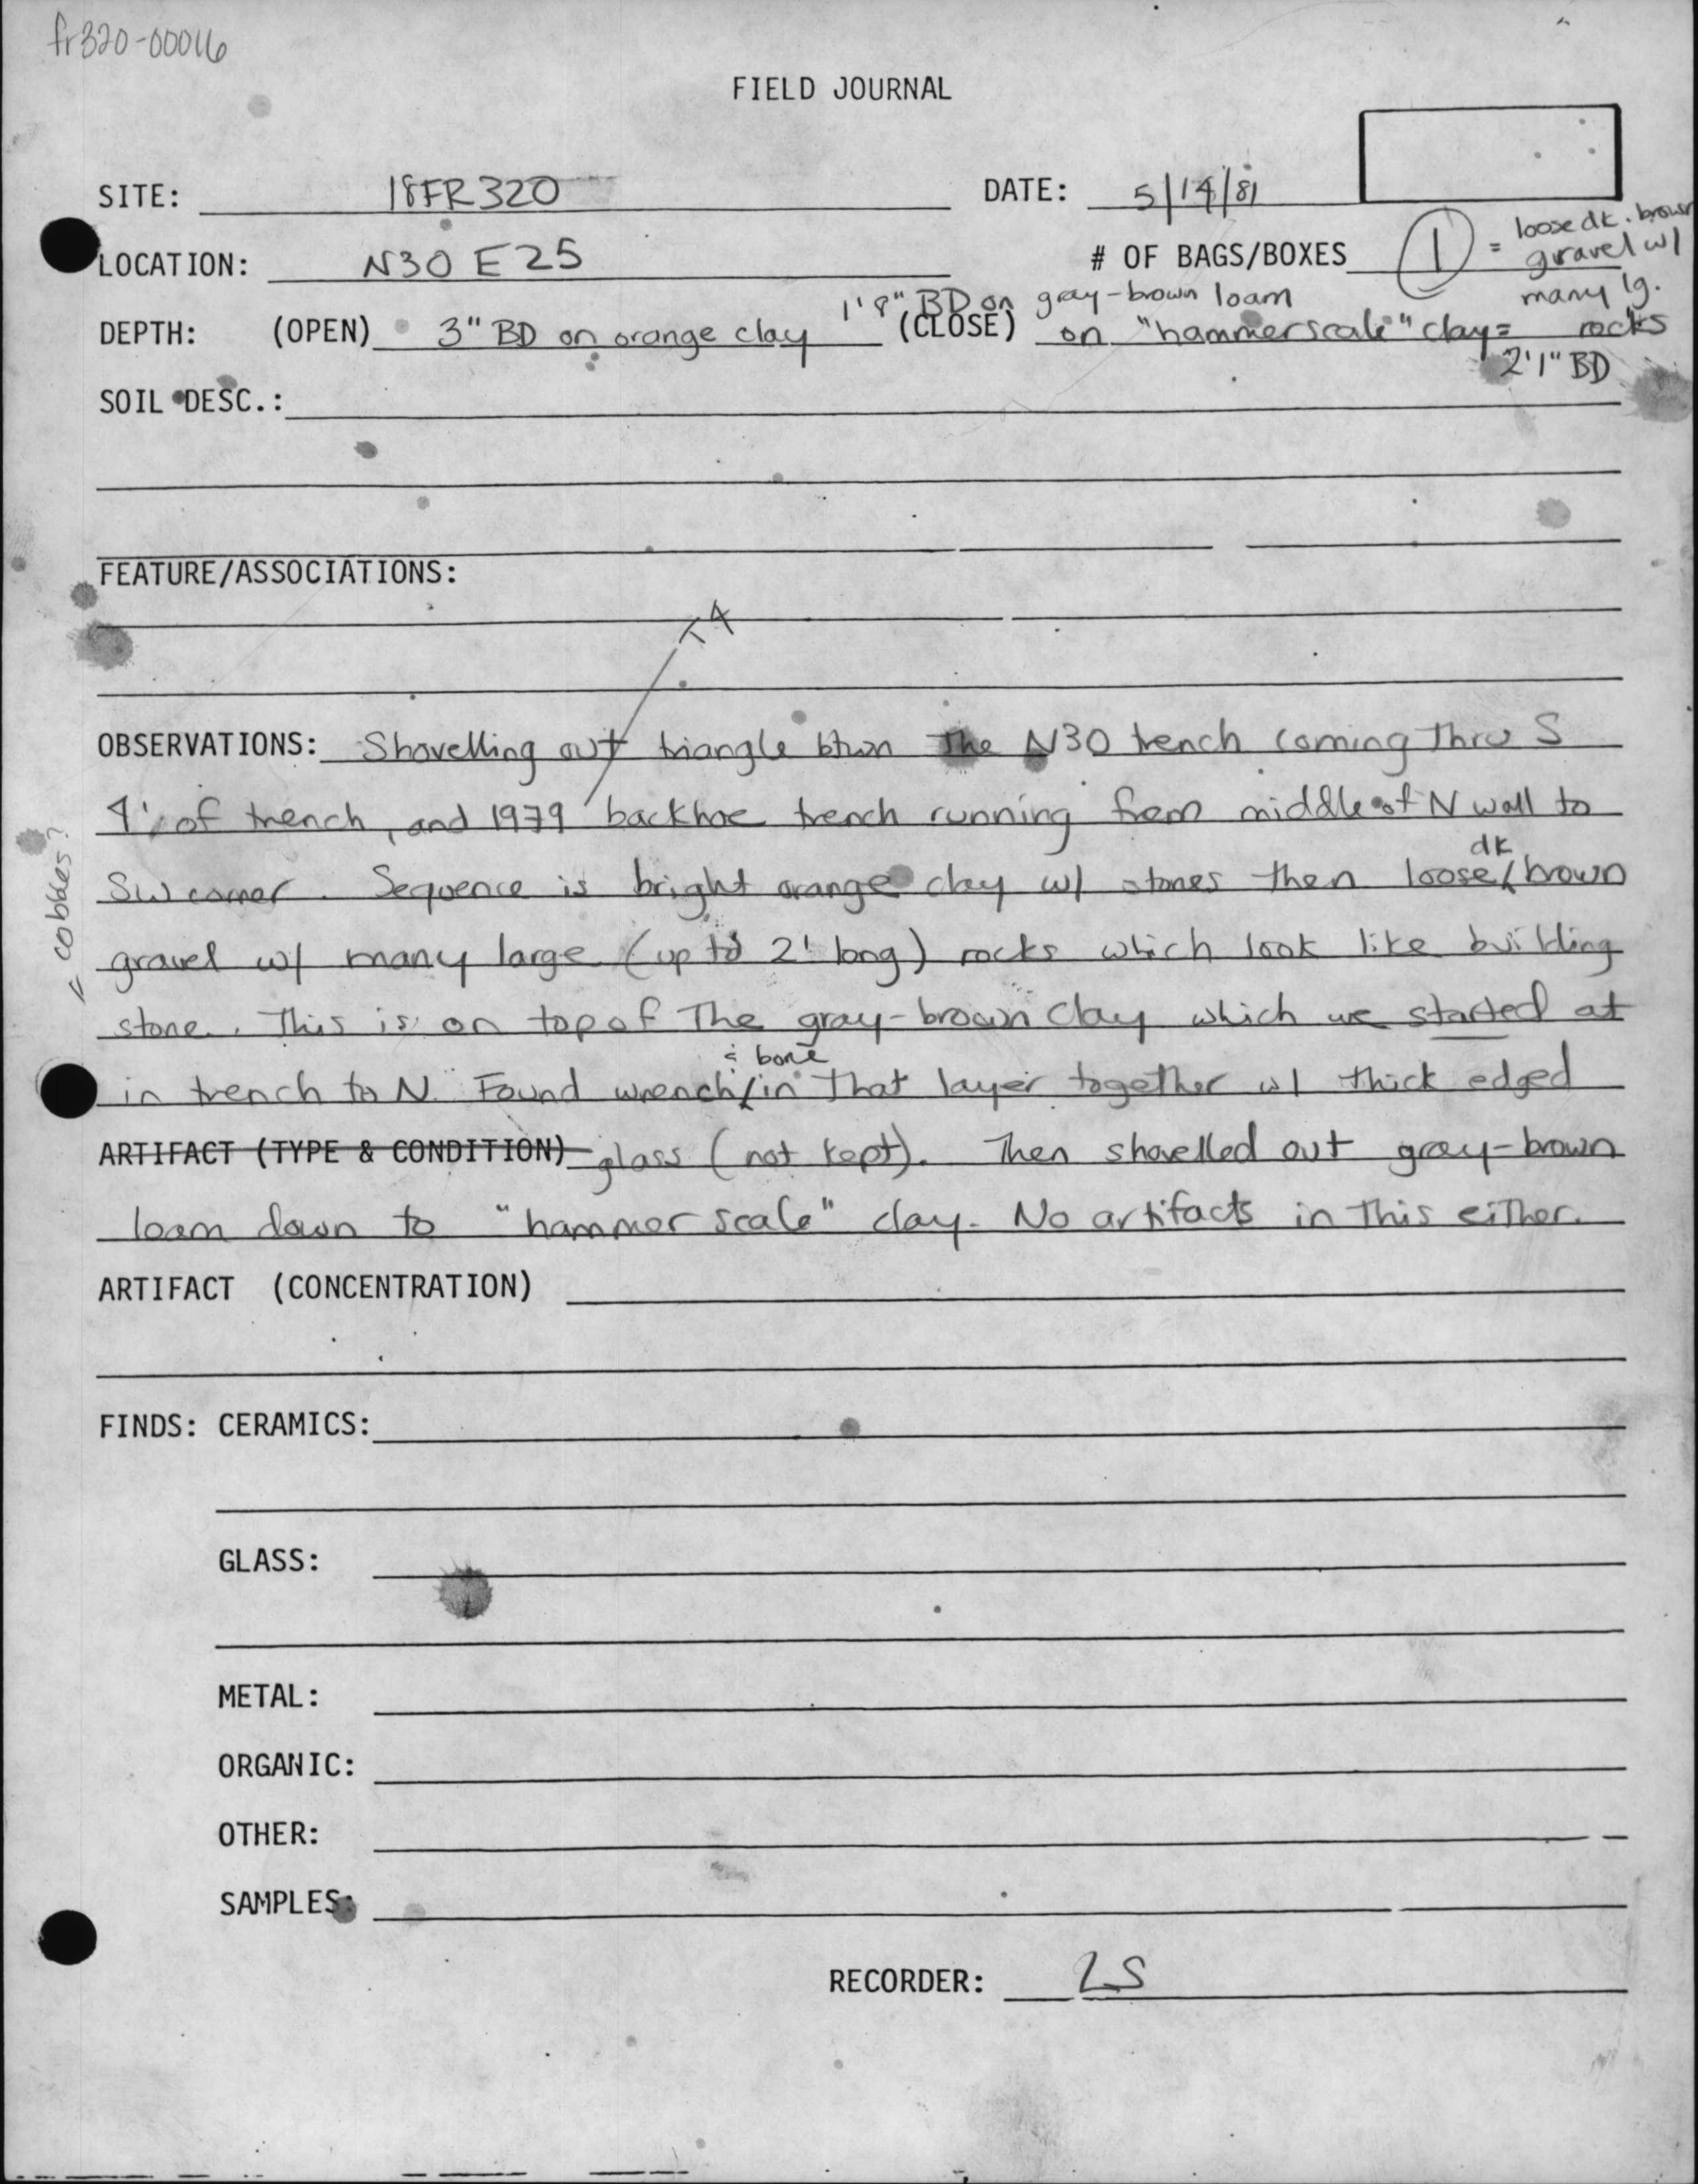 fr320-00016
FIELD JOURNAL
SITE: 18FR320 DATE: 5/14/81
LOCATION: N30 E25 # OF BAGS/BOXES 1 = loose dk. brown
gravel w/
many lg.
rocks
1'8" BD on gray-brown loam
DEPTH: (OPEN) 3" BD on orange clay (CLOSE) on "hammerscale" clay =
2'1" BD
SOIL DESC.:
FEATURE/ASSOCIATIONS:
T4
OBSERVATIONS: Shovelling out triangle btwn the N30 trench coming thru S
4' of trench, and 1979 backhoe trench running from middle of N wall to
dk
SW corner. Sequence is bright orange clay w/ stones then loose brown
gravel w/ many large (up to 2' long) rocks which look like building
= cobbles?
stone. This is on top of the gray-brown clay which we started at
& bone
in trench to N. Found wrench in that layer together w/ thick edged
ARTIFACT (TYPE & CONDITION) glass (not kept). Then shovelled out gray-brown
loam down to "hammer scale" clay. No artifacts in this either.
ARTIFACT (CONCENTRATION)
FINDS: CERAMICS:
GLASS:
METAL:
ORGANIC:
OTHER:
SAMPLES:
RECORDER: LS